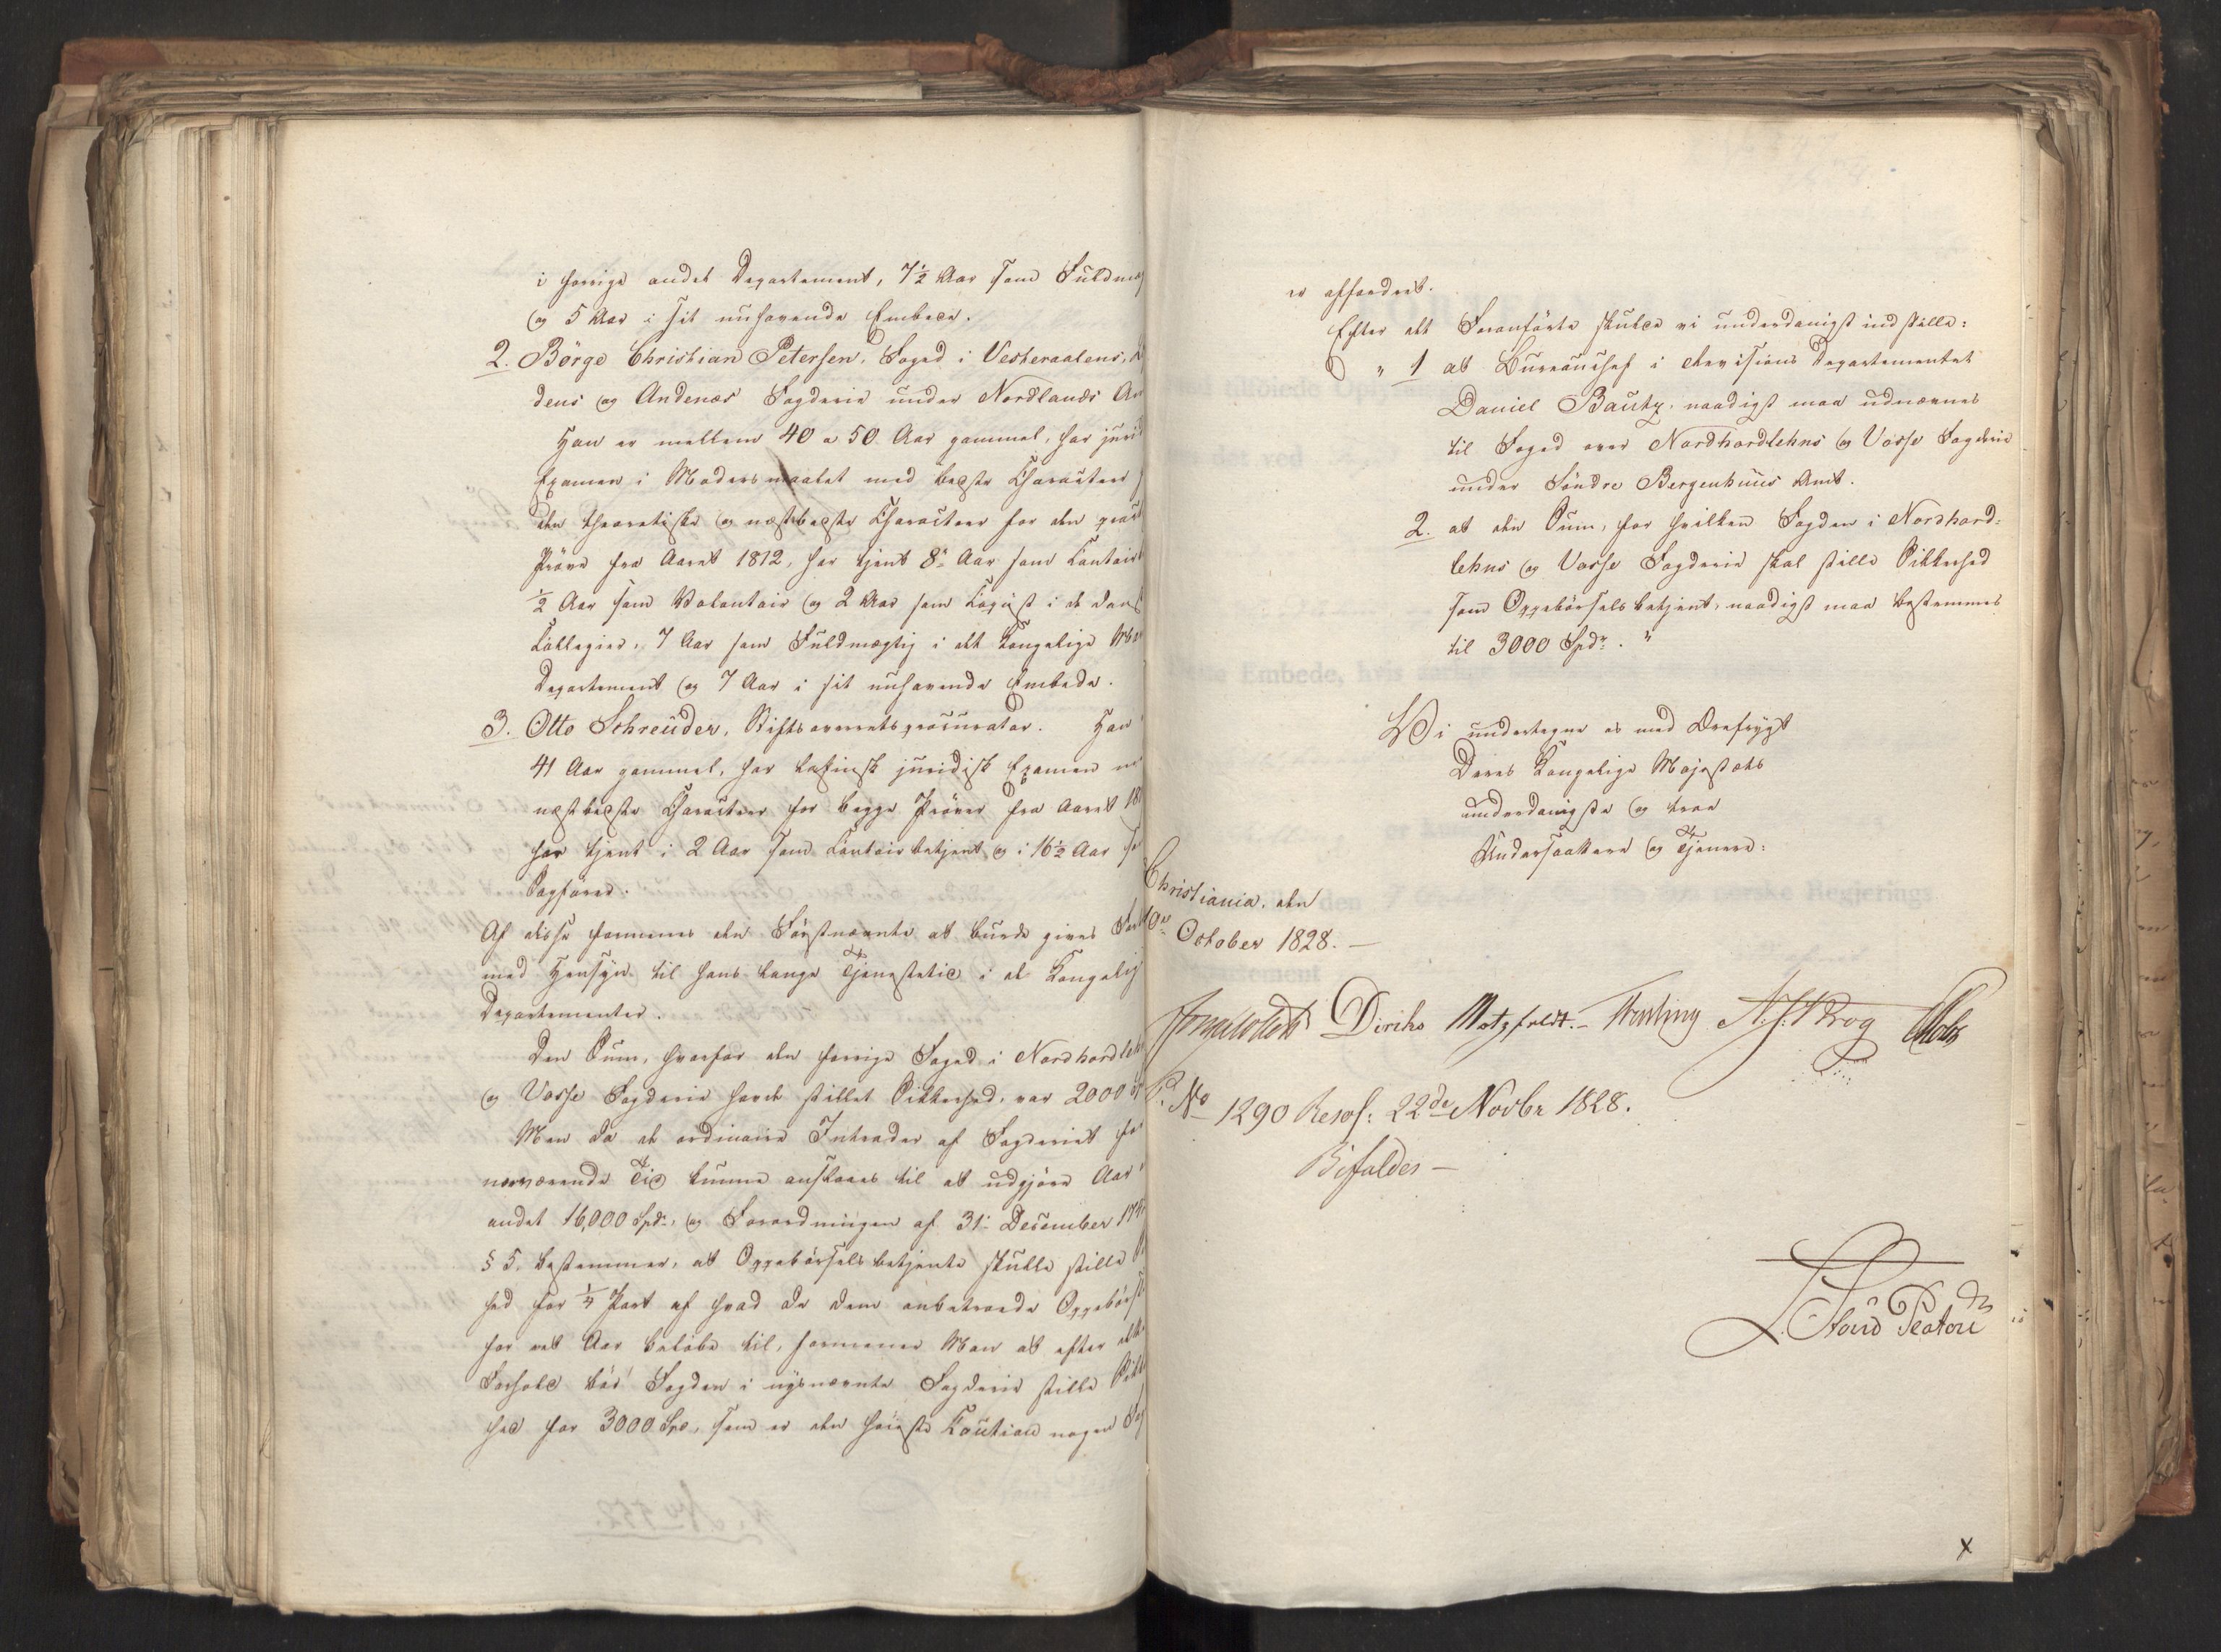 i forrige andet Departement, 7½ Aar som Fuldmæg
og 5 Aar i sit nuhavende Embede.
2. Börge Christian Petersen, Foged i Vesteraalens,
dens og Andenæs Fogderie under Nordlands Am
Han er mellem 40 a 50 Aar gammel, har juri
Examen i Modersmaalet med bedste Character
den theoretiske og næstbedste Character for den pract
Pröve fra Aaret 1812, har tjent 8 Aar som Contoir
½ Aar som Volontair og 2 Aar som Copist i de dans
Collegier, 7 Aar som Fuldmægtig i det Kongelige
Departement og 7 Aar i sit nuhavende Embede.
3. Otto Schreuder, Stiftsoverretsprocurator. Han
41 Aar gammel, har latinsk juridisk Examen
næstbedste Character for begge Pröver fra Aaret 18
har tjent i 2 Aar som Contoirbetjent og i 16½ Aar
Sagförer.
Af disse formenes den Förstnævnte at burde gives For
med Hensyn til hans lange Tjenestetid i de Kongelig
Departementer.
Den Sum, hvorfor den forrige Foged i Nordhordleh
og Vosse Fogderie havde stillet Sikkerhed, var 2000
Men da de ordinaire Intrader af Fogderiet for
nærværende Tid kunne ansslaaes til at udgjöre Aar
andet 16,000 Spd:, og Forordningen af 31: December 17
§ 5. bestemmer, at Oppebörselsbetjente skulle stille
hed for ¼ Part af hvad de dem anbetroede Oppebörs
for eet Aar belöbe til, formener Man at efter dette
Forhold bör Fogden i nysnævnte Fogderie stille Sikk
hed for 3000 Spd, som er den höieste Caution nogen Fog
er affordret.
Efter det Foranförte skulde vi underdanigst indstille:
" 1 at Bureauchef i Revisions Departementet
Daniel Bautz, naadigst maa udnævnes
til Foged over Nordhordlehns og Vosse Fogderie
under Söndre Bergenhuus Amt.
2. at den Sum, for hvilken Fogden i Nordhord-
lehns og Vosse Fogderie skal stille Sikkerhed
som Oppebörselsbetjent, naadigst maa bestemmes
til 3000 Spd: . "
Vi undertegne os med Ærefrygt
Deres Kongelige Majestæts
underdanigste og troe
Undersaattere og Tjenere:
Christiania, den
10de October 1828. —
Diriks Motzfeldt. Treschow Krog
P. No 1290 Resol: 22de Novbr 1828.
Bifaldes —
x